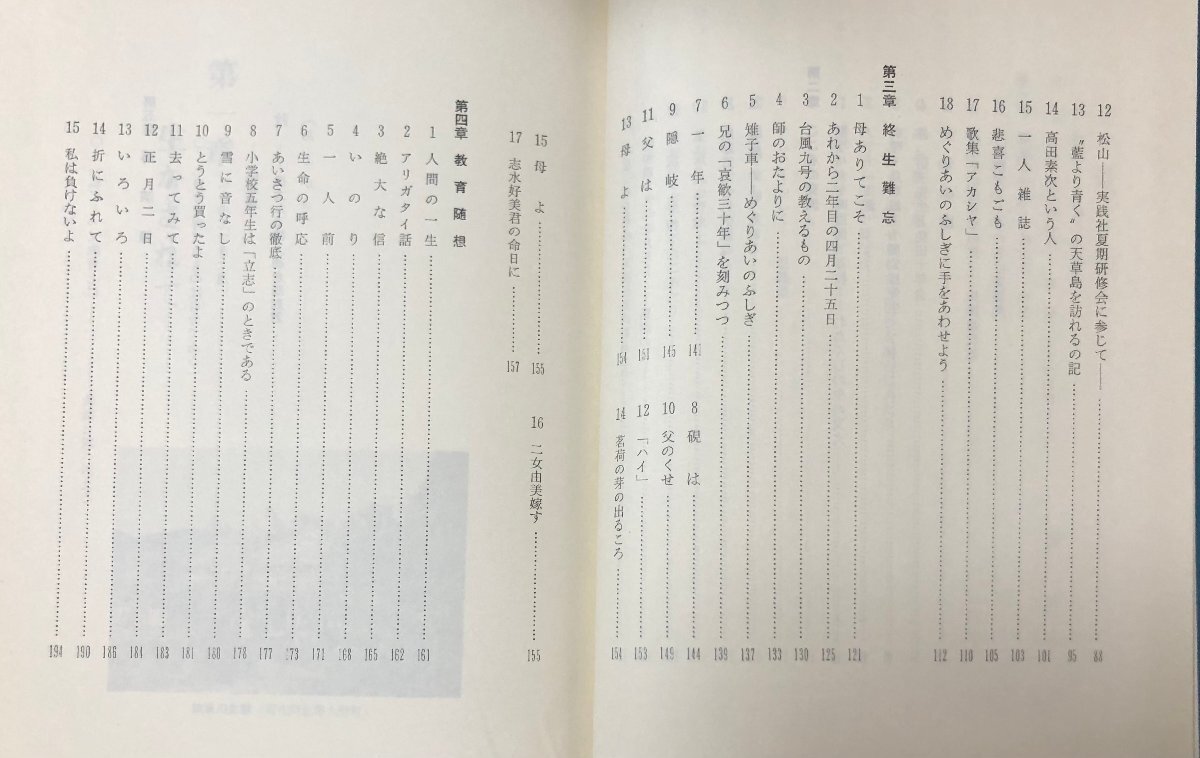 12 松山――実践社夏期研修会に参じて―― 88
13 “藍より青く”の天草島を訪れるの記 95
14 高田素次という人 101
15 一人雑誌 103
16 悲喜こもごも 105
17 歌集「アカシヤ」 110
18 めぐりあいのふしぎに手をあわせよう 112
第三章 終生難忘
1 母ありてこそ 121
2 あれから二年目の四月二十五日 125
3 台風九号の教えるもの 130
4 師のおたよりに 133
5 雉子車――めぐりあいのふしぎ 137
6 兄の「哀歓三十年」を刻みつつ 139
7 一年 141
8 硯は 144
9 隠岐 145
10 父のくせ 149
11 父は 151
12 「ハイ」 153
13 母よ 154
14 茗荷の芽の出るころ 154
15 母よ 155
16 二女由美嫁す 155
17 志水好美君の命日に 157
第四章 教育随想
1 人間の一生 161
2 アリガタイ話 162
3 絶大な信 165
4 いのり 168
5 一人前 171
6 生命の呼応 173
7 あいさつ行の徹底 177
8 小学校五年生は「立志」のときである 178
9 雪に音なし 180
10 とうとう買ったよ 181
11 去ってみて 183
12 正月二日 184
13 いろいろ 186
14 折にふれて 190
15 私は負けないよ 194